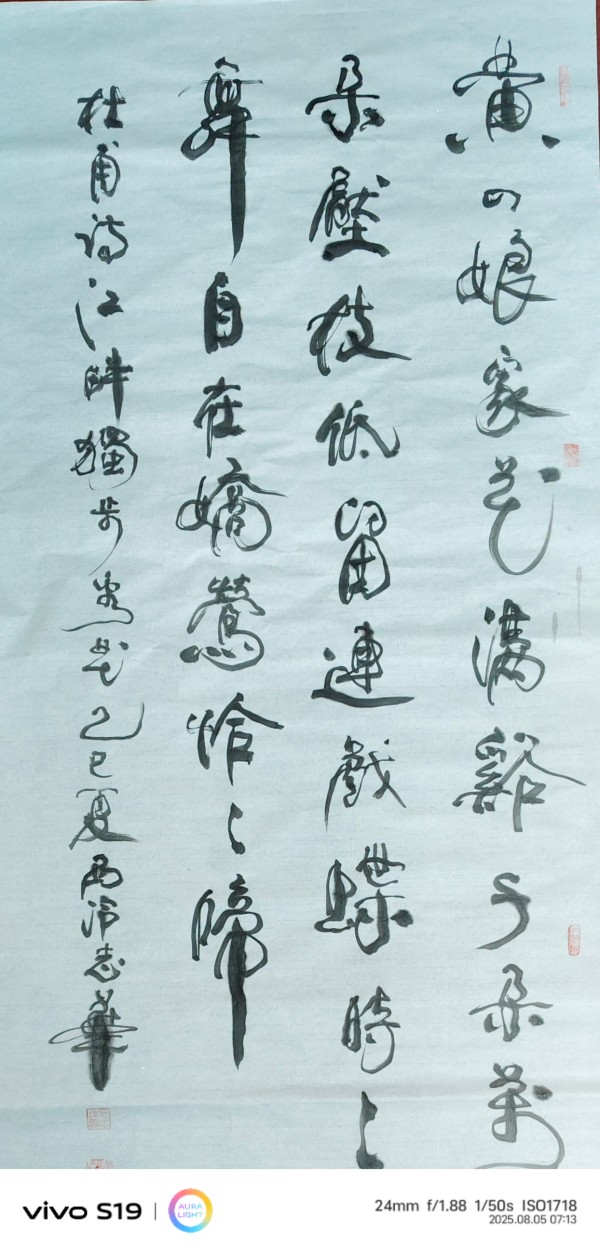 黄四娘家花滿谿千朵萬
朵壓枝低留連戲蝶時〻
舞自在嬌鶯恰〻啼
杜甫詩江畔獨步尋花乙巳夏西泠志華
vivo S19 | AURA LIGHT
24mm f/1.88 1/50s ISO1718
2025.08.05 07:13